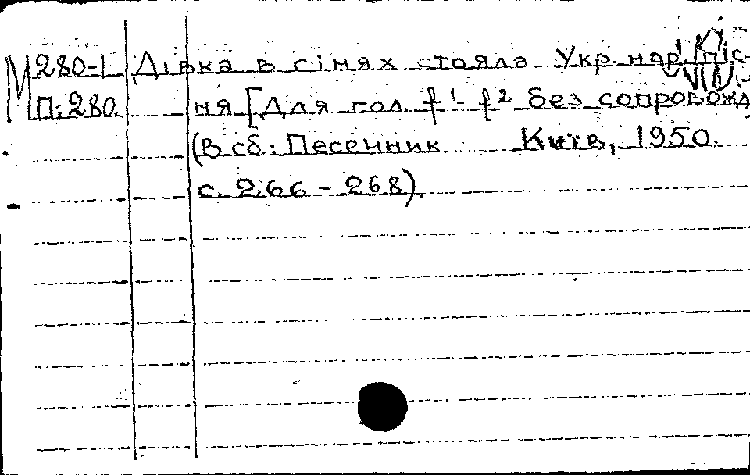 М 280-1 Дівка в сінях стояла Укр нар піс-
П:280 ня [Для гол f¹-f² без сопровожд
(В сб: Песенник Київ, 1950.
с. 266-268)